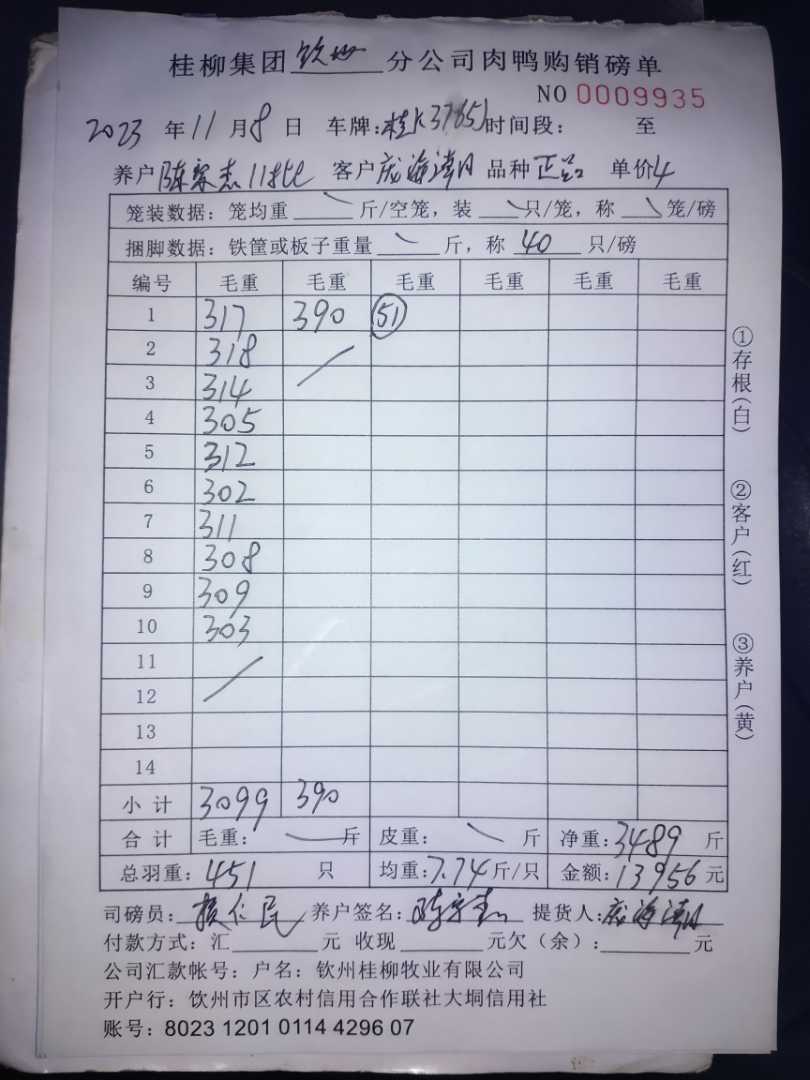 桂柳集团钦州分公司肉鸭购销磅单
NO 0009935
2023年11月8日 车牌:桂K37651时间段: 至
养户 陈家杰11批 客户庞海潮 品种 正品 单价4
笼装数据:笼均重 斤/空笼,装 只/笼,称 笼/磅
捆脚数据:铁筐或板子重量 斤,称 40 只/磅
编号 毛重 毛重 毛重 毛重 毛重 毛重
1 317 390 51
2 318
3 314
4 305
5 312
6 302
7 311
8 308
9 309
10 303
11
12
13
14
小计 3099 390
合计 毛重: 斤 皮重: 斤 净重:3489 斤
总羽重:451 只 均重:7.74斤/只 金额:13956元
司磅员: 仁民 养户签名:陈家杰 提货人:庞海潮
付款方式:汇 元 收现 元欠(余): 元
公司汇款帐号:户名:钦州桂柳牧业有限公司
开户行:饮州市区农村信用合作联社大垌信用社
账号:8023 1201 0114 4296 07
①存根(白)
②客户(红)
③养户(黄)